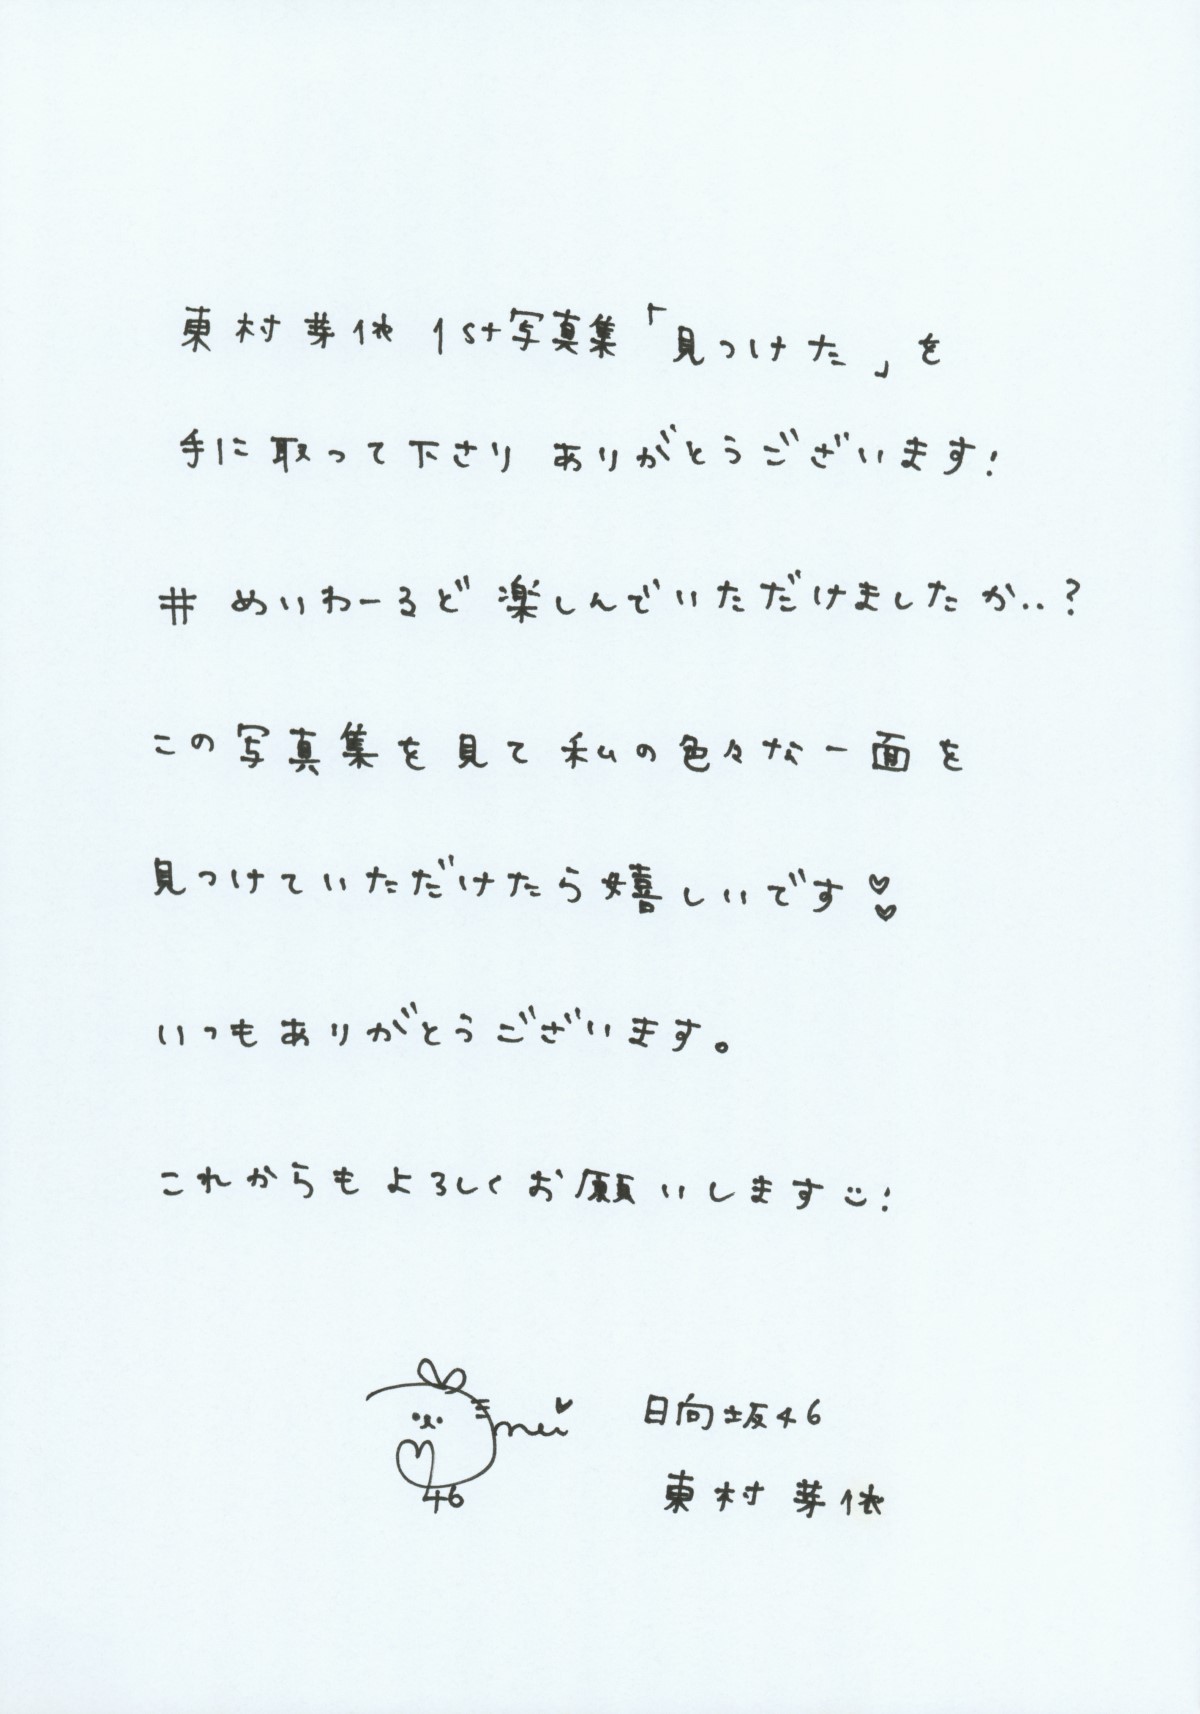 東村芽依 1st写真集「見つけた」を
手に取って下さり ありがとうございます!
#めいわーるど 楽しんでいただけましたか..?
この写真集を見て私の色々な一面を
見つけていただけたら嬉しいです♡♡
いつもありがとうございます。
これからもよろしくお願いします!
mei♡
46
日向坂46
東村芽依